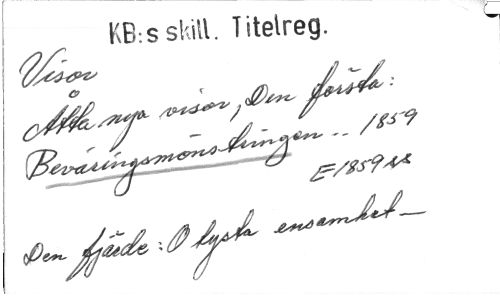 KB:s skill. Titelreg.
Visor
Åtta nya visor, Den första:
Beväringsmönstringen .. 1859
E 1859
Den fjärde: O tysta ensamhet —